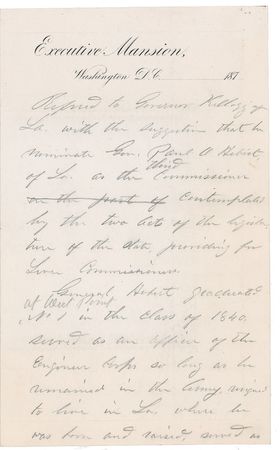 Executive Mansion,
Washington D.C. 187
Refered to Governor Kellogg of
La. with the suggestion that he
nominate Gen. Paul O Hebert,
third
of La. as the Commissioner
on the part of contemplated
by the two acts of the legisla-
ture of the state, providing for
Commissioners.
General Hebert graduated
at West Point
No 1 in the class of 1840,
served as an officer of the
Engineer Corps so long as he
remained in the Army, resigned
to live in La. where he
was born and raised, served as